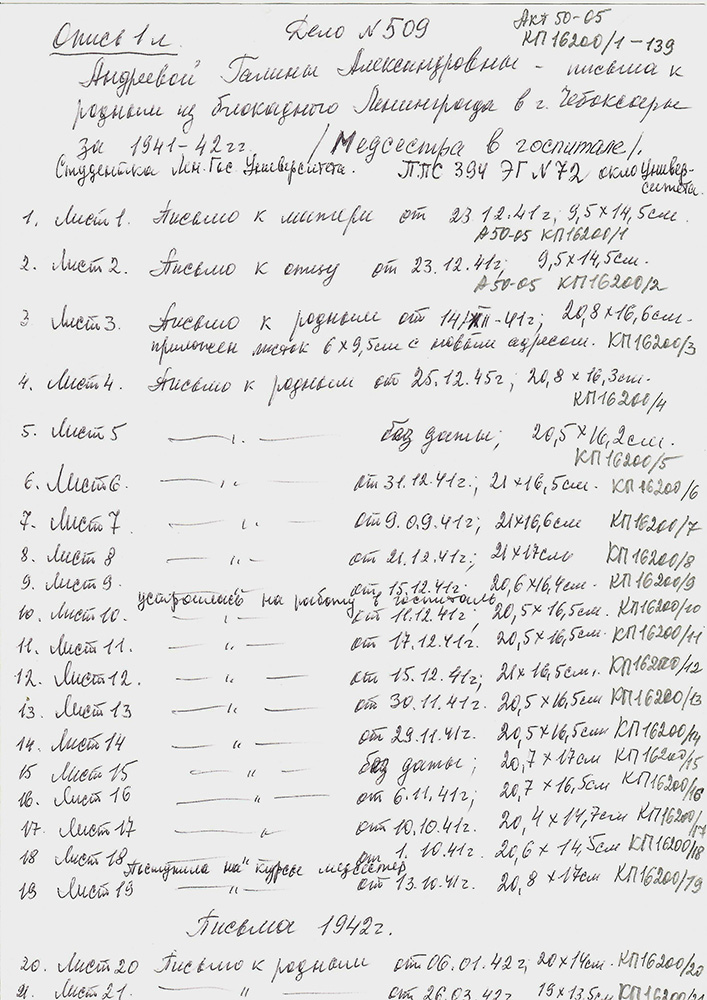 Опись 1 л. Дело N 509 Акт 50-05
КП 16200/1-139
Андреевой Галины Александровны - письма к
родным из блокадного Ленинграда в г. Чебоксары
за 1941-42 гг. /Медсестра в госпитале/.
Студентка Лен. Гос Университета. ППС 394 ЭГ N 72 около Универ-
ситета.
1. Лист 1. Письмо к матери от 23 12.41г; 9,5×14,5см.
А50-05 КП16200/1
2. Лист 2. Письмо к отцу от 23.12.41г; 9,5×14,5см.
А50-05 КП16200/2
3 Лист 3. Письмо к родным от 14/XII-41г; 20,8×16,6см-
приложен листок 6×9,5см с новым адресом. КП16200/3
4. Лист 4. Письмо к родным от 25.12.45г; 20,8×16,3см.
КП16200/4
5. Лист 5 —— " —— без даты; 20,5×16,2см.
КП16200/5
6. Лист 6. —— " —— от 31.12.41г.; 21×16,5см. КП16200/6
7. Лист 7 —— " —— от 9.0.9.41г; 21×16,6см КП16200/7
8. Лист 8 —— " —— от 21.12.41г; 21×17см КП16200/8
9. Лист 9. от 15.12.41г; 20,6×16,4см. КП16200/9
устроилась на работу в госпиталь
10. Лист 10. —— " —— от 11.12.41г; 20,5×16,5см. КП16200/10
11. Лист 11. —— " —— от 17.12.41г. 20,5×16,5см. КП16200/11
12. Лист 12. —— " —— от 15.12.41г; 21×16,5см. КП16200/12
13. Лист 13 —— " —— от 30.11.41г. 20,5×16,5см КП16200/13
14. Лист 14 —— " —— от 29.11.41г. 20,5×16,5см КП16200/14
15 Лист 15 —— " —— без даты; 20,7×17см КП16200/15
16. Лист 16 —— " —— от 6.11.41г; 20,7×16,5см КП16200/16
17. Лист 17 —— " —— от 10.10.41г. 20,4×14,7см КП16200/17
18 Лист 18 —— " —— от 1.10.41г. 20,6×14,5см КП16200/18
Поступила на курсы медсестер
19 Лист 19 —— " —— от 13.10.41г. 20,8×17см КП16200/19
Письма 1942г.
20. Лист 20 Письмо к родным от 06.01.42г; 20×14см. КП16200/20
21. Лист 21. —— " —— от 26.03.42г. 19×13,5см КП16200/21